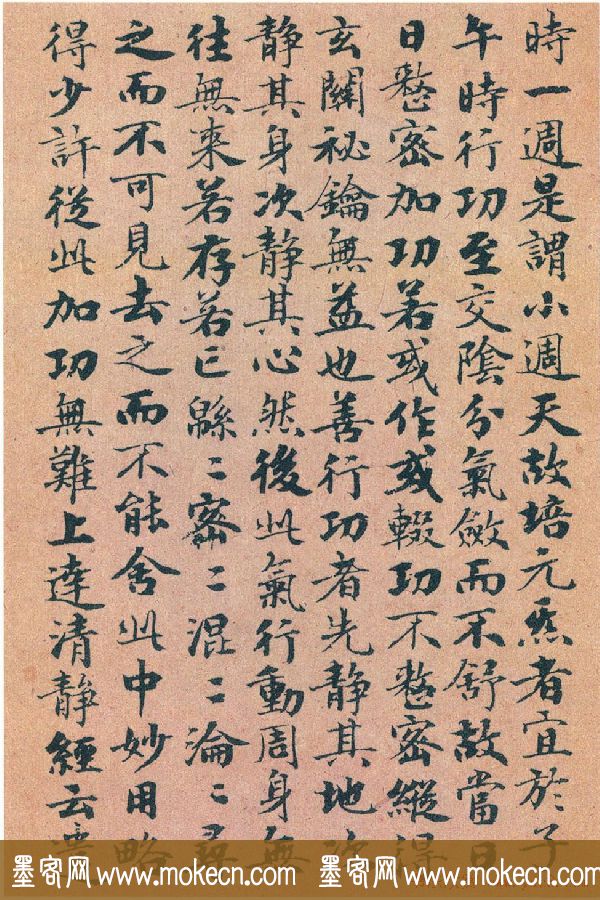 時一週是謂小週天故培元炁者宜於子
午時行功至交陰分氣斂而不舒故當日
日整密加功若或作或輟功不整密縱得
玄關祕鑰無益也善行功者先静其地次
静其身次静其心然後此氣行動周身無
往無来若存若亡緜〻密〻混〻淪〻尋
之而不可見去之而不能舍此中妙用略
得少許從此加功無難上達清静經云
墨客网 www.mokecn.com 墨客网 www.mokecn.com